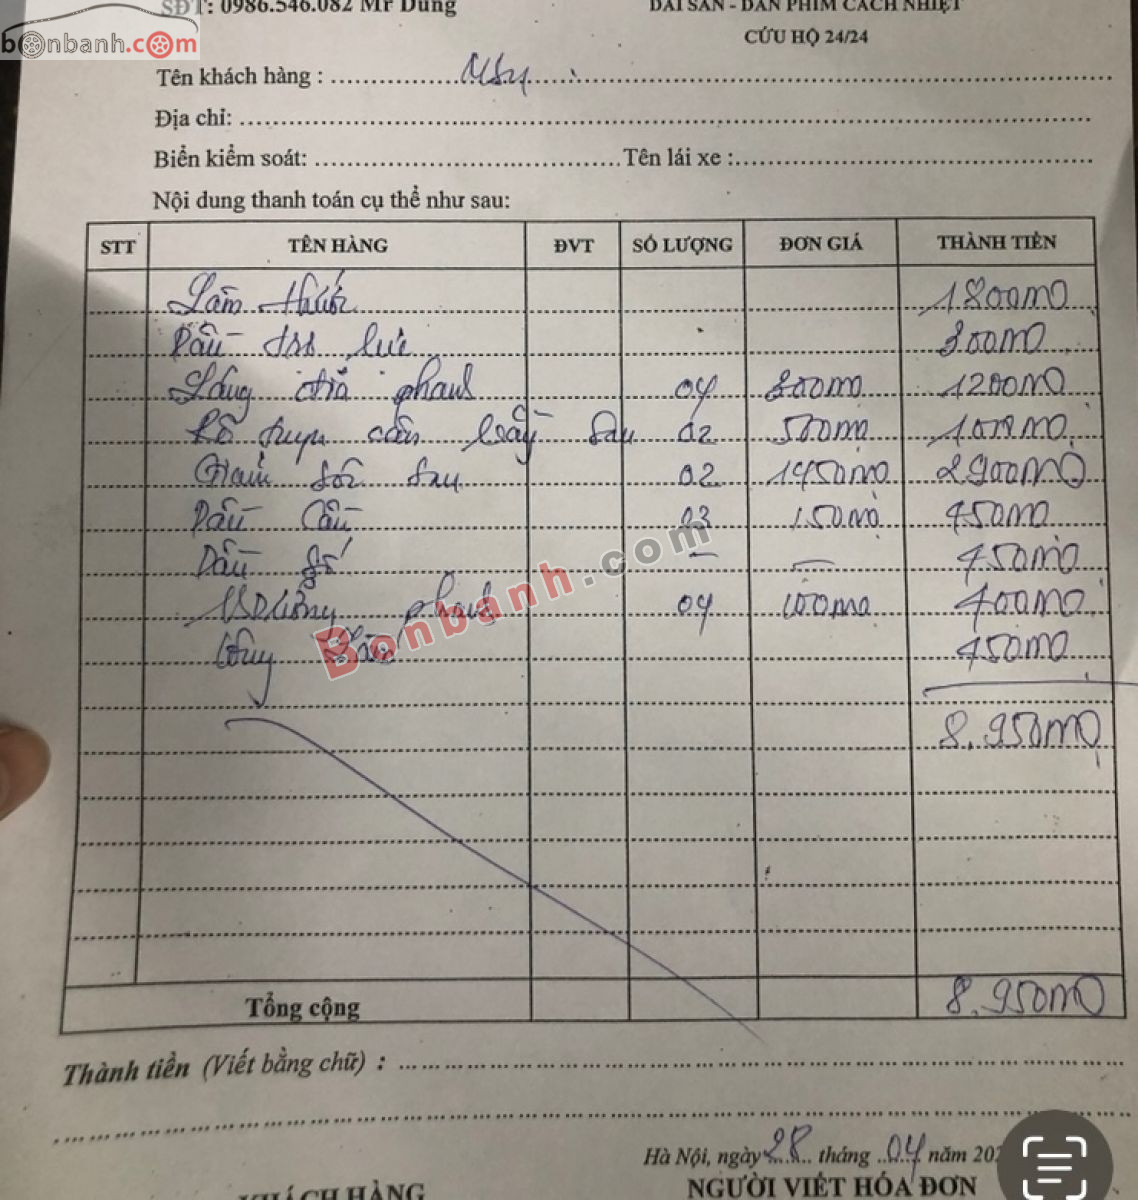 SĐT: 0986.546.082 Mr Dũng
DÀI SẢN - DÁN PHIM CÁCH NHIỆT
bonbanh.com
CỨU HỘ 24/24
Tên khách hàng :
Địa chỉ:
Biển kiểm soát: Tên lái xe :
Nội dung thanh toán cụ thể như sau:
STT TÊN HÀNG ĐVT SỐ LƯỢNG ĐƠN GIÁ THÀNH TIỀN
Làm thước 1800
Dầu trợ lực 300
Láng đĩa phanh 04 300 1200
cân bằng sau 02 500 1000
Giảm sóc sau 02 1450 2900
Dầu cầu 03 150 450
Dầu số - - 450
phanh 04 100 400
450
8.950
Bonbanh.com
Tổng cộng 8.950
Thành tiền (Viết bằng chữ) :
Hà Nội, ngày 28 tháng 04 năm 202
KHÁCH HÀNG NGƯỜI VIẾT HÓA ĐƠN